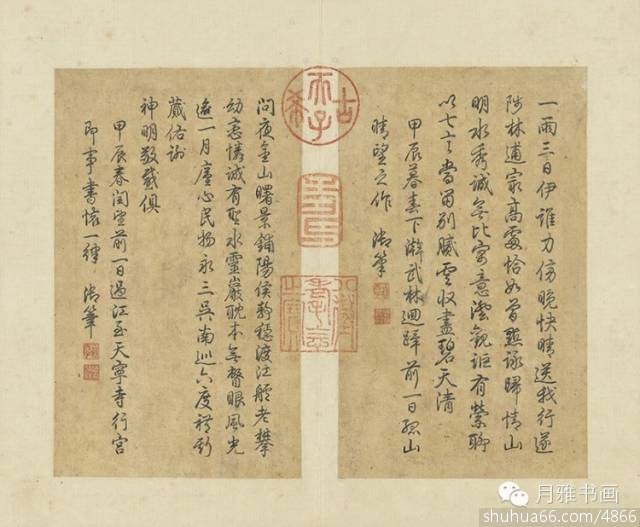 一雨三日伊誰力傍晚快晴送我行遂
陟林逋家高處恰如曾點詠歸情山
明水秀誠無比寄意澄觀詎有縈聊
以七言當留別膩雲收盡碧天清
甲辰暮春下澣武林迴蹕前一日孤山
晴望之作 御筆
古希天子
問夜金山曙景鋪陽侯静穩渡江艫老攀
幼恋情誠有聖水靈巖耽本無瞥眼風光
逾一月廑心民物永三吳南巡六度
佑謝
神明敬俱
甲辰春閏望前一日過江至天寧寺行宮
即事書懷一律 御筆
月雅书画
shuhua66.com/4866